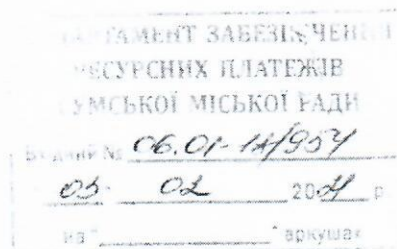 ДЕПАРТАМЕНТ ЗАБЕЗПЕЧЕННЯ
РЕСУРСНИХ ПЛАТЕЖІВ
СУМСЬКОЇ МІСЬКОЇ РАДИ
Вхідний № 06.01-14/954
03 02 20 р
на " " аркушах